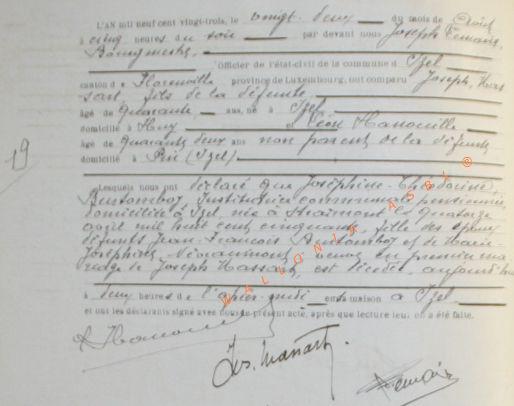 L'AN mil neuf cent vingt-trois, le vingt-deux du mois de
à cinq heures du soir par devant nous Joseph
Bourgmestre,
Officier de l'état-civil de la commune d Izel
canton de Florenville province de Luxembourg, ont comparu Joseph,
fils de la défunte
âgé de quarante ans, né à Izel
domicilié à Huy et Léon Hanouille
âgé de quarante deux ans non parent de la défunte
domicilié à Pin (Izel)
19
Lesquels nous ont déclaré que Joséphine
Institutrice communale pensionnée
domiciliée à Izel, née à Straimont le quatorze
avril mil huit cent cinquante, fille des époux
défunts Jean-François et de Marie
Joséphine veuve en premier ma
riage de Joseph est décédée aujourd'hui
à deux heures de l'après-midi en sa maison à Izel
et ont les déclarants signé avec nous le présent acte, après que lecture leur en a été faite.
WALLONIA ASBL ©
Hanouille
Jos.